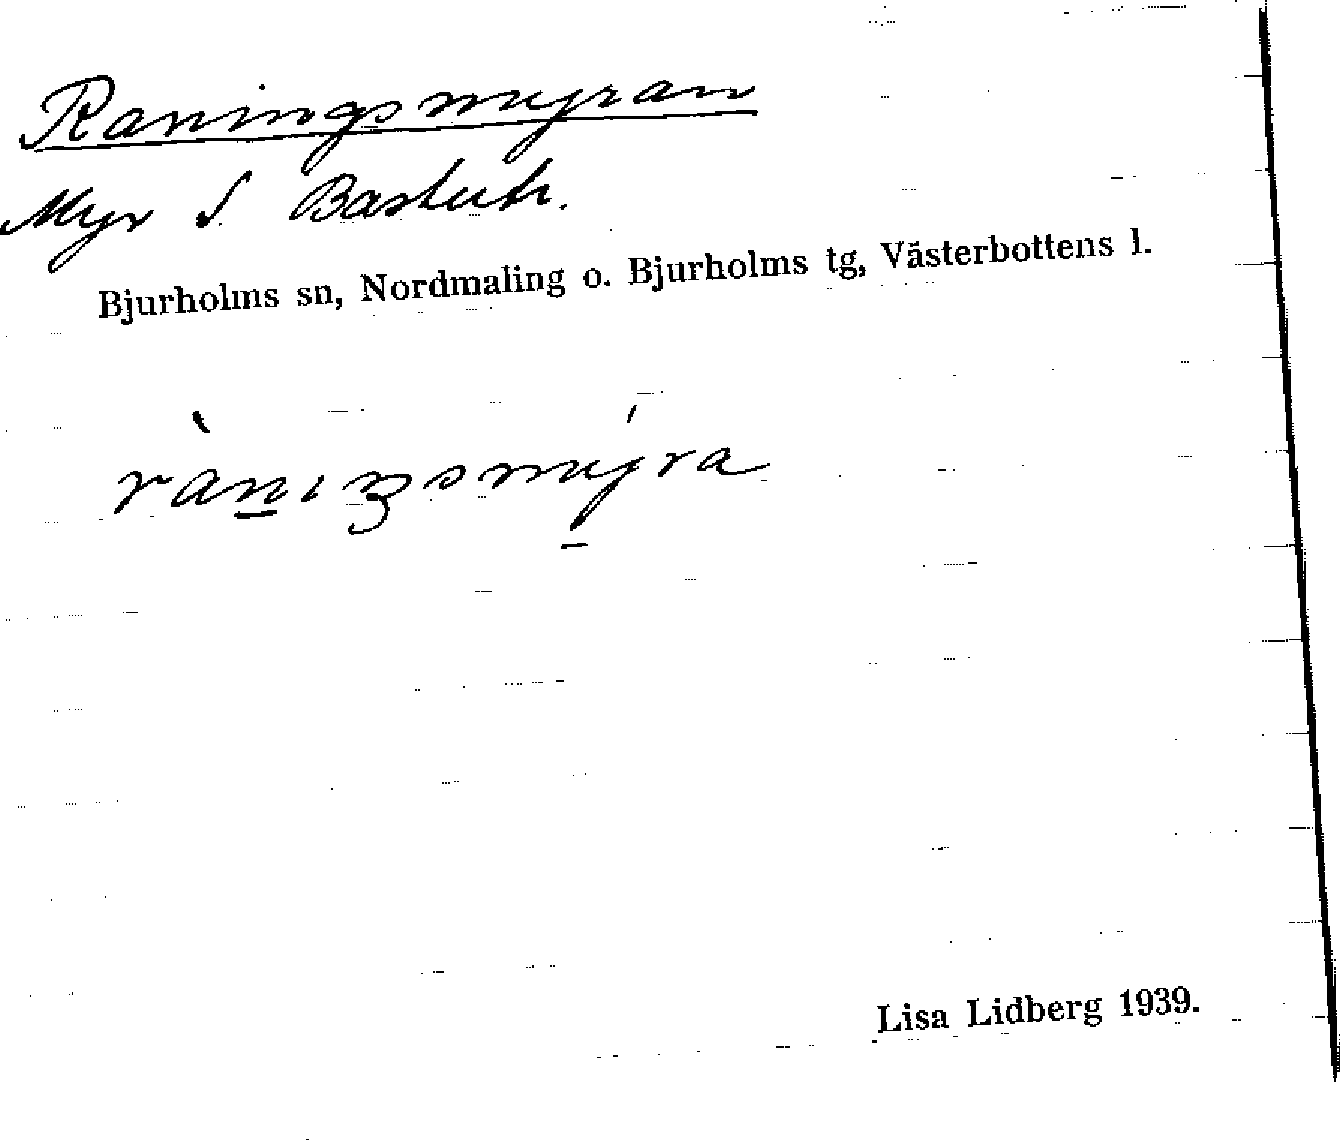 Raningsmyran
Myr S. Bastutr.
Bjurholms sn, Nordmaling o. Bjurholms tg, Västerbottens l.
rànıŋsmý̱ra
Lisa Lidberg 1939.